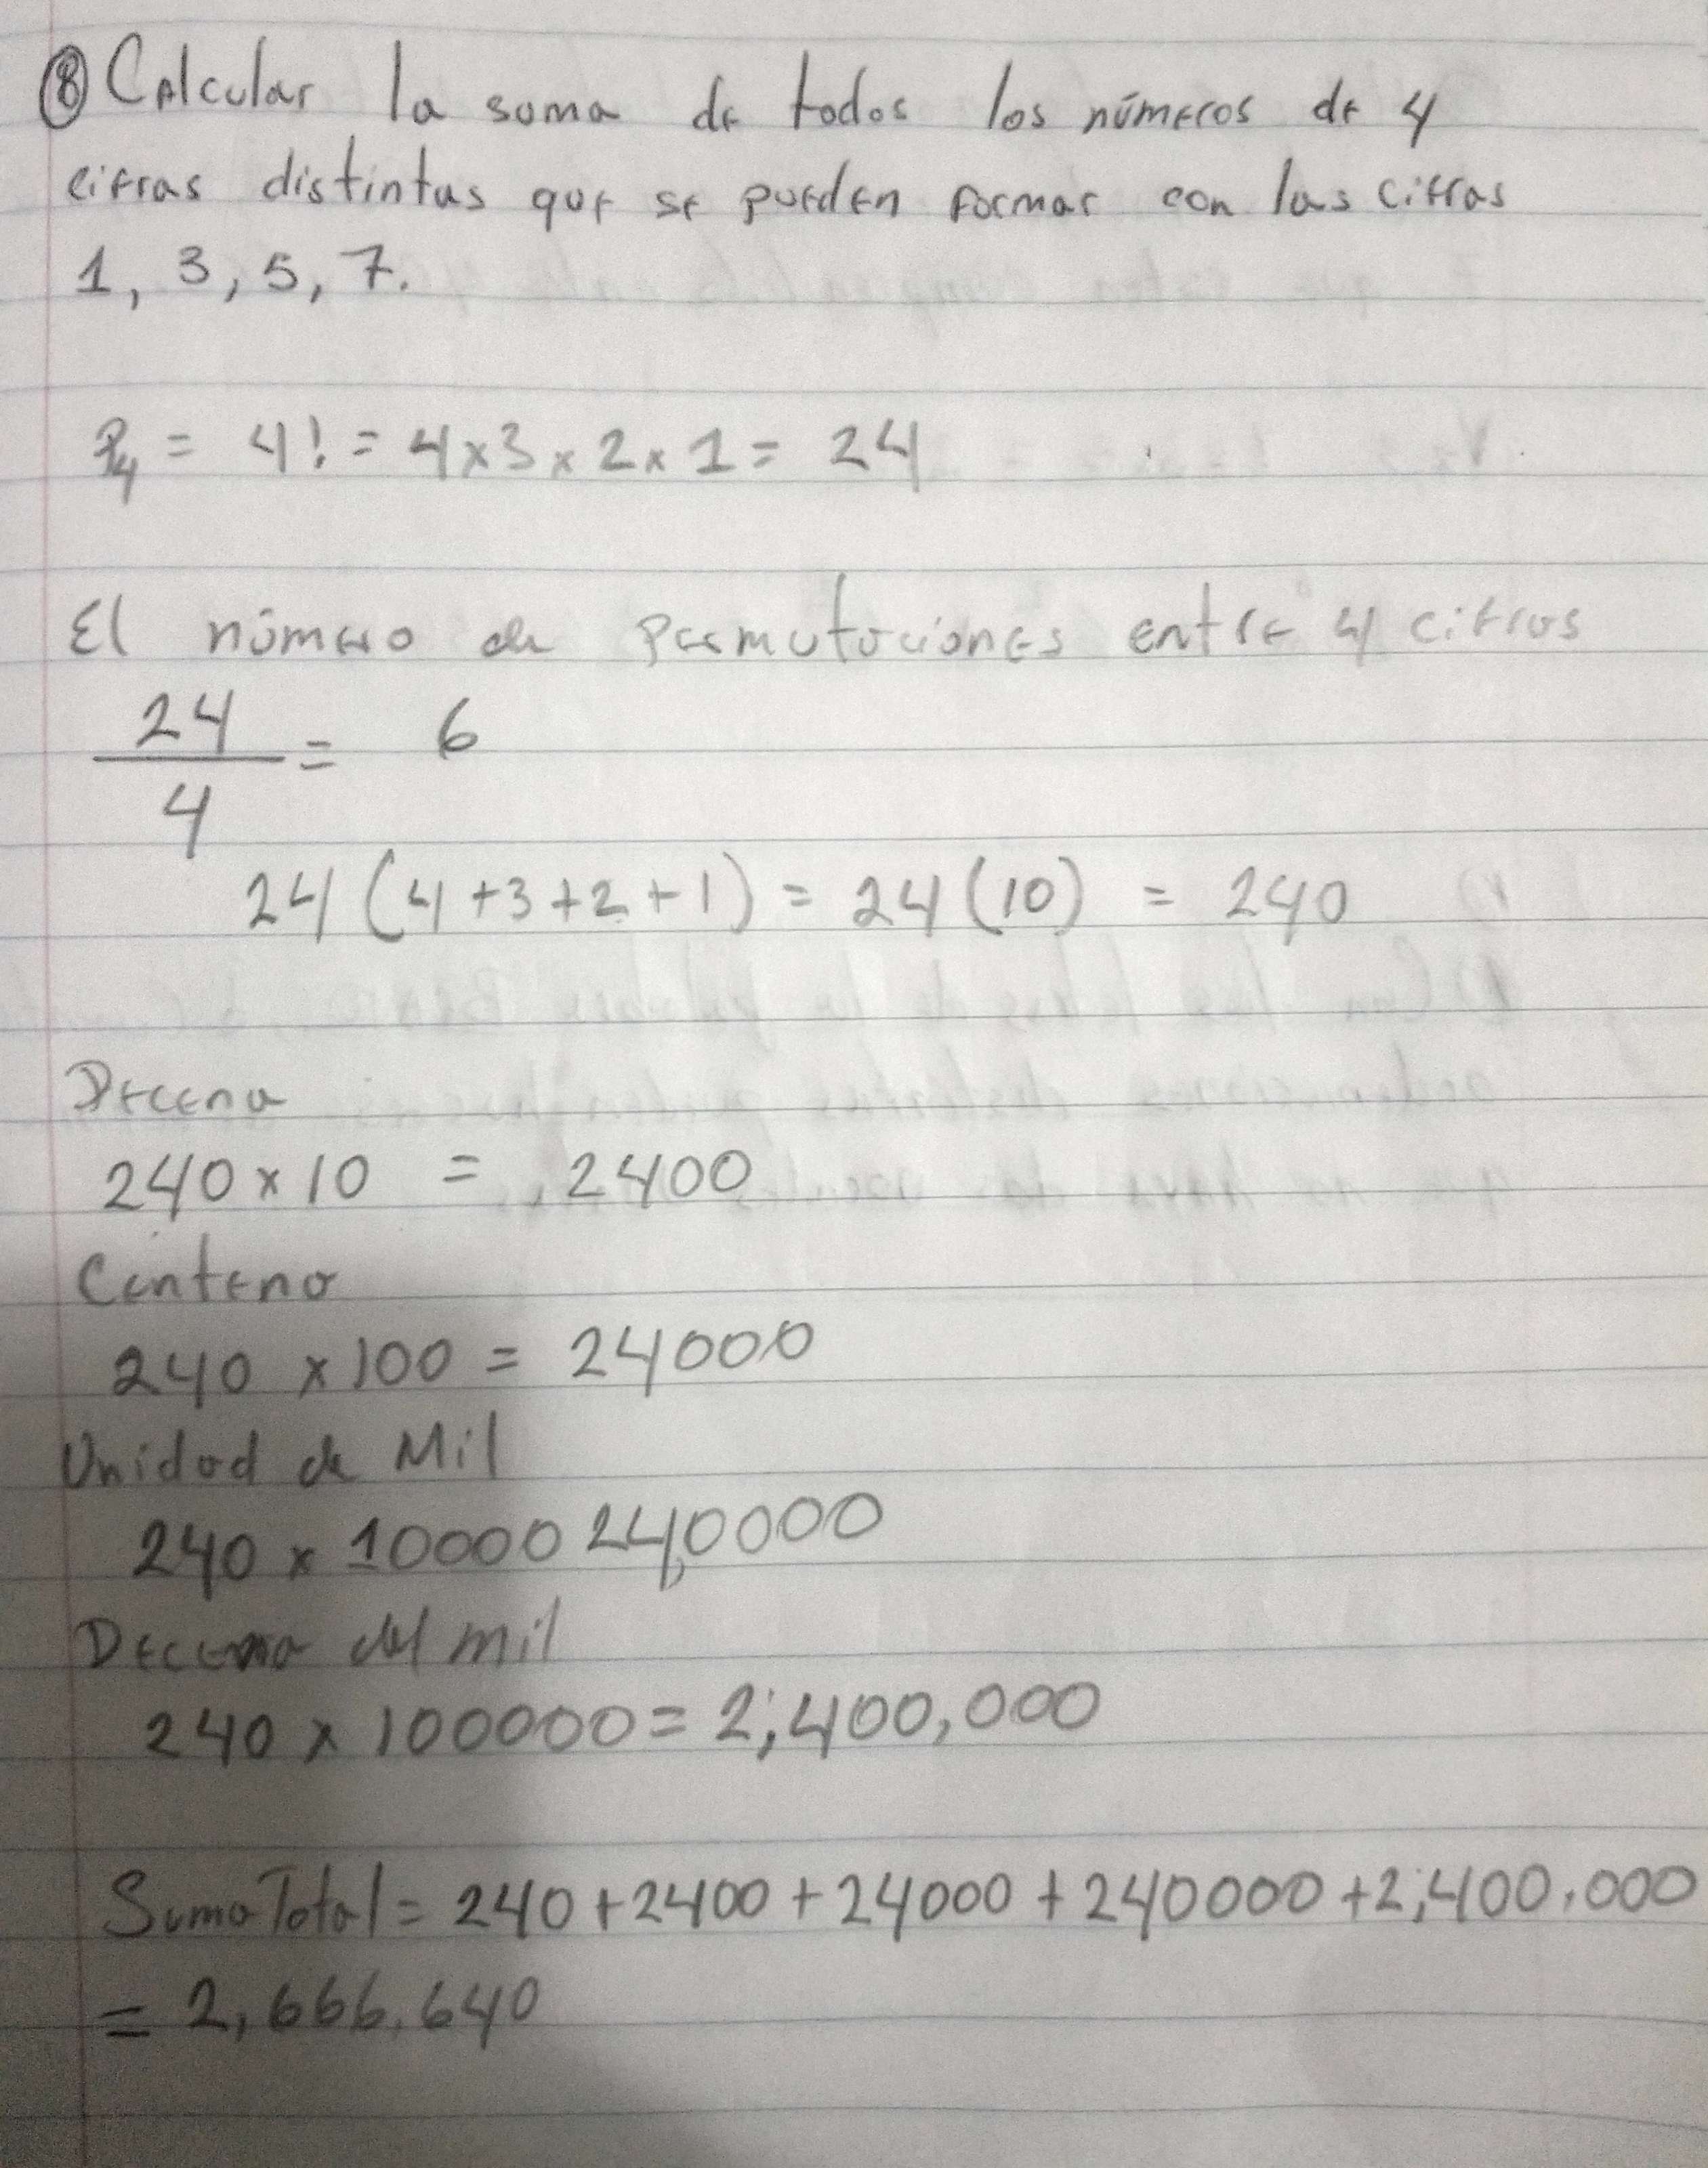 ⑧ Calcular la suma de todos los números de 4
cifras distintas que se pueden formar con las cifras
1, 3, 5, 7.
P4 = 4! = 4x3x2x1 = 24
El número de permutaciones entre 4 cifras
24/4 = 6
24(4+3+2+1) = 24(10) = 240
Decena
240 x 10 = 2400
Centena
240 x 100 = 24000
Unidad de Mil
240 x 10000 240000
Decena del mil
240 x 100000 = 2;400,000
Suma Total = 240+2400+24000+240000+2;400.000
= 2,666.640